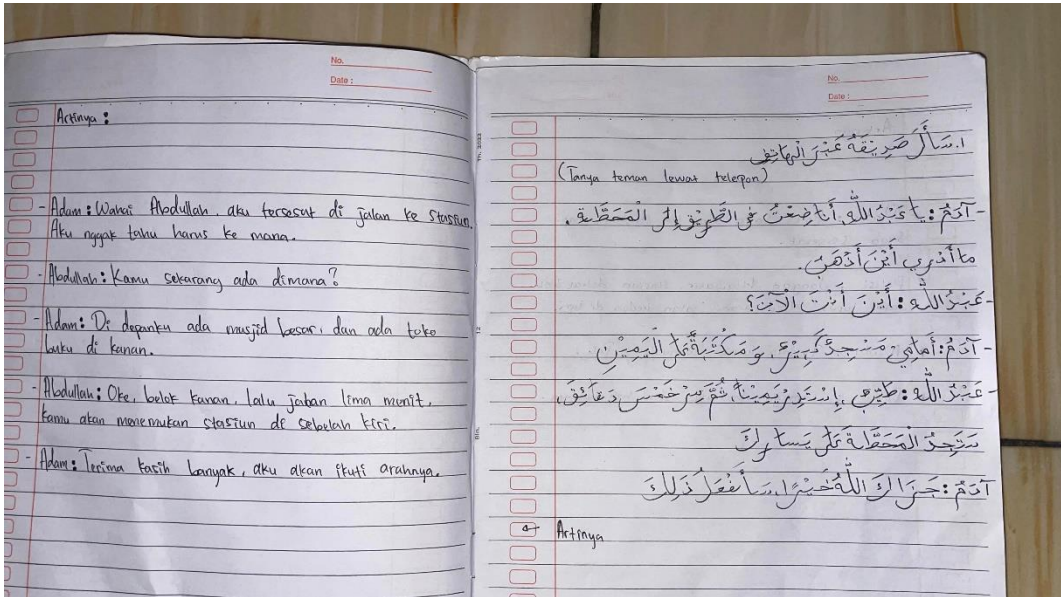 No.
Date :
Artinya :
- Adam : Wahai Abdullah, aku tersesat di jalan ke stasiun.
Aku nggak tahu harus ke mana.
- Abdullah : Kamu sekarang ada dimana?
- Adam : Di depanku ada masjid besar, dan ada toko
buku di kanan.
- Abdullah : Oke, belok kanan, lalu jaban lima menit.
kamu akan menemukan stasiun di sebelah kiri.
- Adam : Terima kasih banyak, aku akan ikuti arahnya.
No.
Date :
١. سَأَلَ صَدِيقَهُ عَبْرَ الْهَاتِفِ
(Tanya teman lewat telepon)
- آدَمُ : يَا عَبْدُ اللَّهِ، أَنَا ضِعْتُ فِي الطَّرِيْقِ إِلَى الْمَحَطَّةِ.
مَا أَدْرِي أَيْنَ أَذْهَبُ.
- عَبْدُ اللَّهِ : أَيْنَ أَنْتَ الْآنَ؟
- آدَمُ : أَمَامِي مَسْجِدٌ كَبِيْرٌ، وَ مَكْتَبَةٌ عَلَى الْيَمِيْنِ
- عَبْدُ اللَّهِ : طَيِّبٌ، إِسْتَدِرْ يَمِيْنًا، ثُمَّ سِرْ خَمْسَ دَقَائِقَ،
سَتَجِدُ الْمَحَطَّةَ عَلَى يَسَارِكَ
آدَمُ : جَزَاكَ اللَّهُ خَيْرًا، سَأَفْعَلُ ذَلِكَ
Artinya